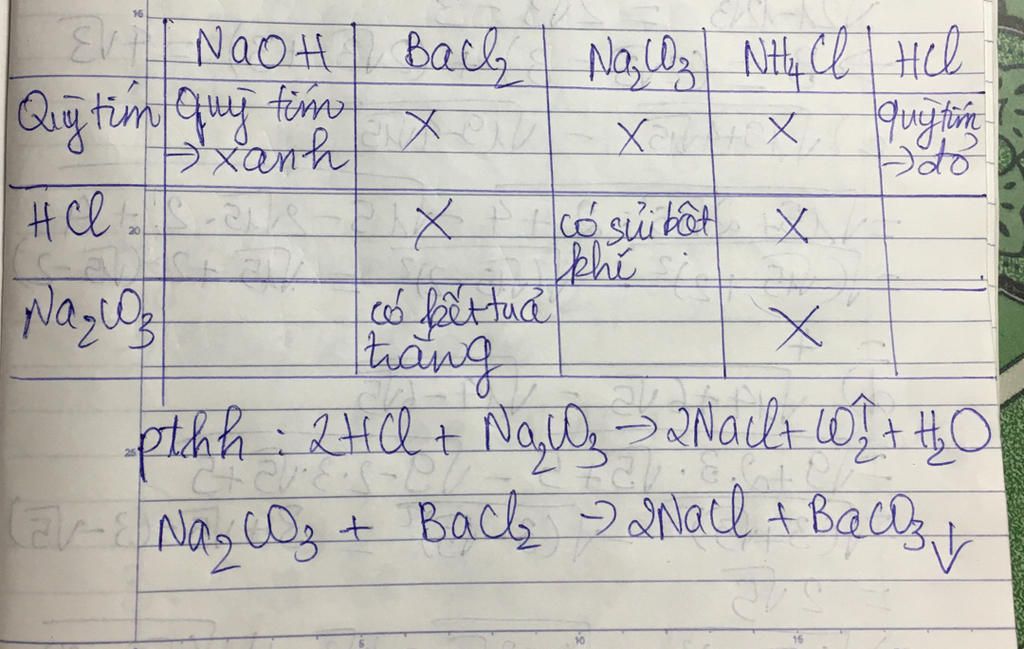 NaOH BaCl2 Na2CO3 NH4Cl HCl
Quỳ tím quỳ tím → xanh X X X quỳ tím → đỏ
HCl X có sủi bọt khí X
Na2CO3 có kết tuả trắng X
pthh : 2HCl + Na2CO3 → 2NaCl + CO2↑ + H2O
Na2CO3 + BaCl2 → 2NaCl + BaCO3↓